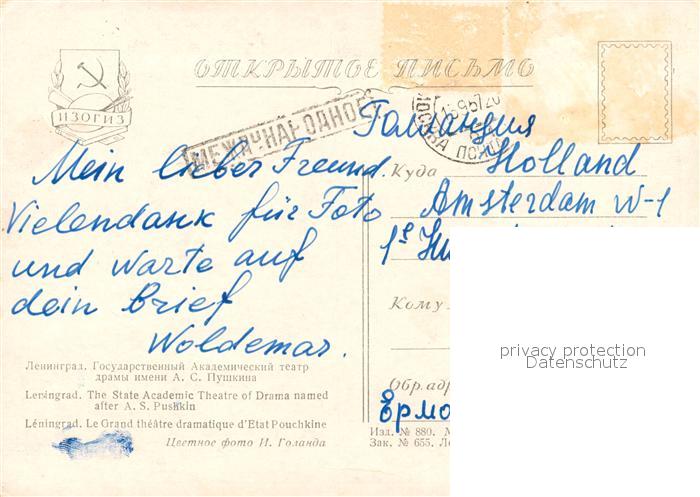 ОТКРЫТОЕ ПИСЬМО
ИЗОГИЗ
МЕЖДУНАРОДНОЕ
Mein lieber Freund.
Vielendank für Foto
und warte auf
dein Brief
Woldemar.
Голландия
Куда Holland
Amsterdam W-1
Кому
privacy protection
Datenschutz
Обр. адр
Ермо
Ленинград. Государственный Академический театр
драмы имени А. С. Пушкина
Leningrad. The State Academic Theatre of Drama named
after A. S. Pushkin
Léningrad. Le Grand théâtre dramatique d'Etat Pouchkine
Цветное фото И. Голанда
Изд. № 880. М
Зак. № 655. Л